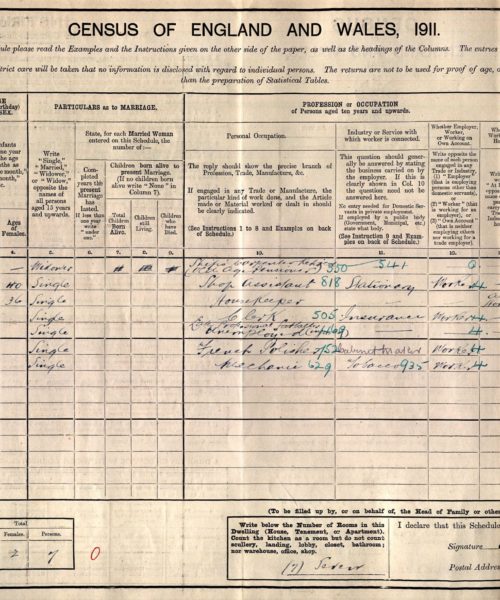 CENSUS OF ENGLAND AND WALES, 1911.
ule please read the Examples and the Instructions given on the other side of the paper, as well as the headings of the Columns. The entries
trict care will be taken that no information is disclosed with regard to individual persons. The returns are not to be used for proof of age,
than the preparation of Statistical Tables.
PARTICULARS as to MARRIAGE.
PROFESSION or OCCUPATION
of Persons aged ten years and upwards.
Write
"Single,"
"Married,"
"Widower,"
or "Widow,"
opposite the
names of
all persons
aged 15 years
and upwards.
State, for each Married Woman
entered on this Schedule, the
number of:—
Completed
years the
present
Marriage
has
lasted.
If less than
one year
write
"under
one."
Children born alive to
present Marriage.
(If no children born
alive write "None" in
Column 7).
Total
Children
Born
Alive.
Children
still
Living.
Children
who
have
Died.
Personal Occupation.
The reply should show the precise branch of
Profession, Trade, Manufacture, &c.
If engaged in any Trade or Manufacture, the
particular kind of work done, and the Article
made or Material worked or dealt in should
be clearly indicated.
(See Instructions 1 to 8 and Examples on back of
Schedule.)
Industry or Service with
which worker is connected.
This question should gener-
ally be answered by stating
the business carried on by
the employer. If this is
clearly shown in Col. 10
the question need not be
answered here.
No entry needed for Domestic Servants
in private employment.
If employed by a public body
(Government, Municipal, etc.)
state what body.
(See Instruction 9 and Examples
on back of Schedule.)
Whether Employer,
Worker,
or Working on
Own Account.
Write opposite the
name of each person
engaged in any
Trade or Industry,
(1) "Employer"
(that is employing
persons other than
domestic servants),
or (2) "Worker"
(that is working
for an employer), or
(3) "Own Account"
(that is neither
employing others
nor working for a
trade employer).
Ages
of
Females.
4. 5. 6. 7. 8. 9. 10. 11. 12.
— Widower 350 541
40 Single Shop Assistant 818 Stationary Worker 4
36 Single Housekeeper
Single Clerk 505 Insurance Worker 4
Single — 4
Single French Polisher 152 Cabinet Maker Worker 4
Single Mechanic 629 Tobacco 935 Worker 4
(To be filled up by, or on behalf of, the Head of Family or othe
Total.
Females. Persons.
2 7 0
Write below the Number of Rooms in this
Dwelling (House, Tenement, or Apartment).
Count the kitchen as a room but do not count
scullery, landing, lobby, closet, bathroom;
nor warehouse, office, shop.
(7) Seven
I declare that this Schedule
Signature
Postal Addres